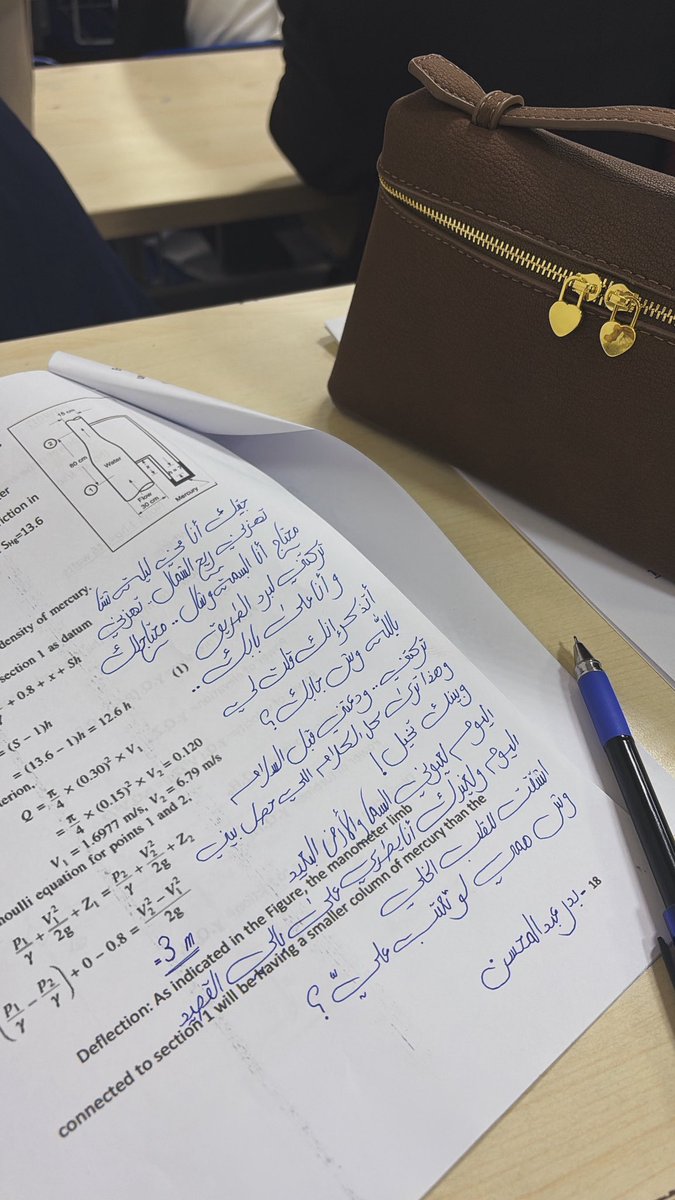 15 cm
2
80 cm
Water
1
Flow
30 cm
Mercury
er
riction in
SHg=13.6
density of mercury.
section 1 as datum
+ 0.8 + x + Sh
= (S − 1)h (1)
= (13.6 − 1)h = 12.6 h
Q = π/4 × (0.30)² × V₁
= π/4 × (0.15)² × V₂ = 0.120
V₁ = 1.6977 m/s, V₂ = 6.79 m/s
noulli equation for points 1 and 2.
P₁/γ + V₁²/2g + Z₁ = P₂/γ + V₂²/2g + Z₂
(P₁/γ − P₂/γ) + 0 − 0.8 = (V₂² − V₁²)/2g
= 3 m
Deflection: As indicated in the Figure, the manometer limb
connected to section 1 will be having a smaller column of mercury than the
18
جيتك أنا في ليلة شتا
تهزني ريح الشمال .. تهزني
محتاج أنا البسمة وشال .. محتاجلك
تركتني لبرد الطريق
وأنا على بابك ..
أتذكر إنك قلت لي
بالله وش جابك ؟
تركتني .. ودعتني قبل السلام
وهذا ترى كل الكلام اللي حصل بيني
وبينك تخيل !
اليوم السما والأرض البعيد
اليوم أنا بطري على بالي القصيد
اشتقت للقلب الخلي
وش لو تكتب علي ؟
بدر عبدالمحسن -